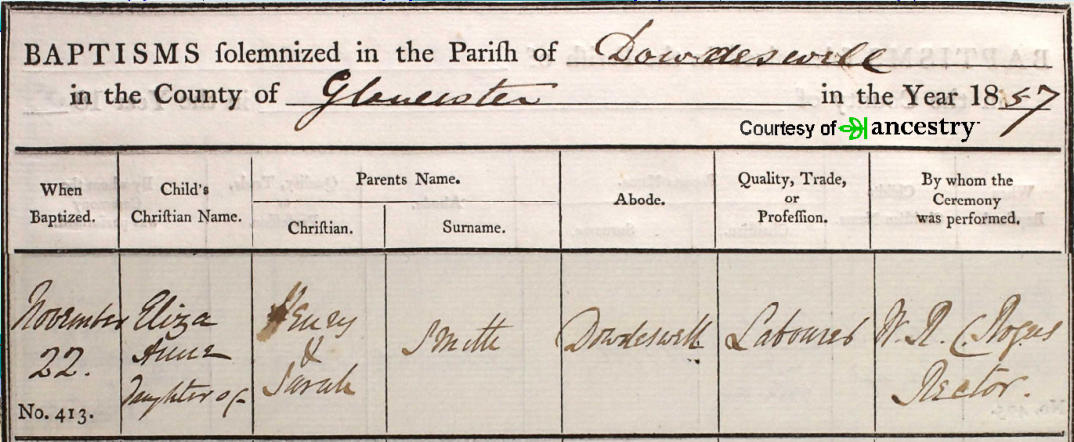 BAPTISMS solemnized in the Parish of Dowdeswell
in the County of Gloucester in the Year 1857
Courtesy of ancestry
When Baptized.
Child's Christian Name.
Parents Name.
Christian.
Surname.
Abode.
Quality, Trade, or Profession.
By whom the Ceremony was performed.
November
22.
No. 413.
Eliza
Anne
Daughter of
Henry
&
Sarah
Smith
Dowdeswell
Labourer
W. R. C. Rogers
Rector.